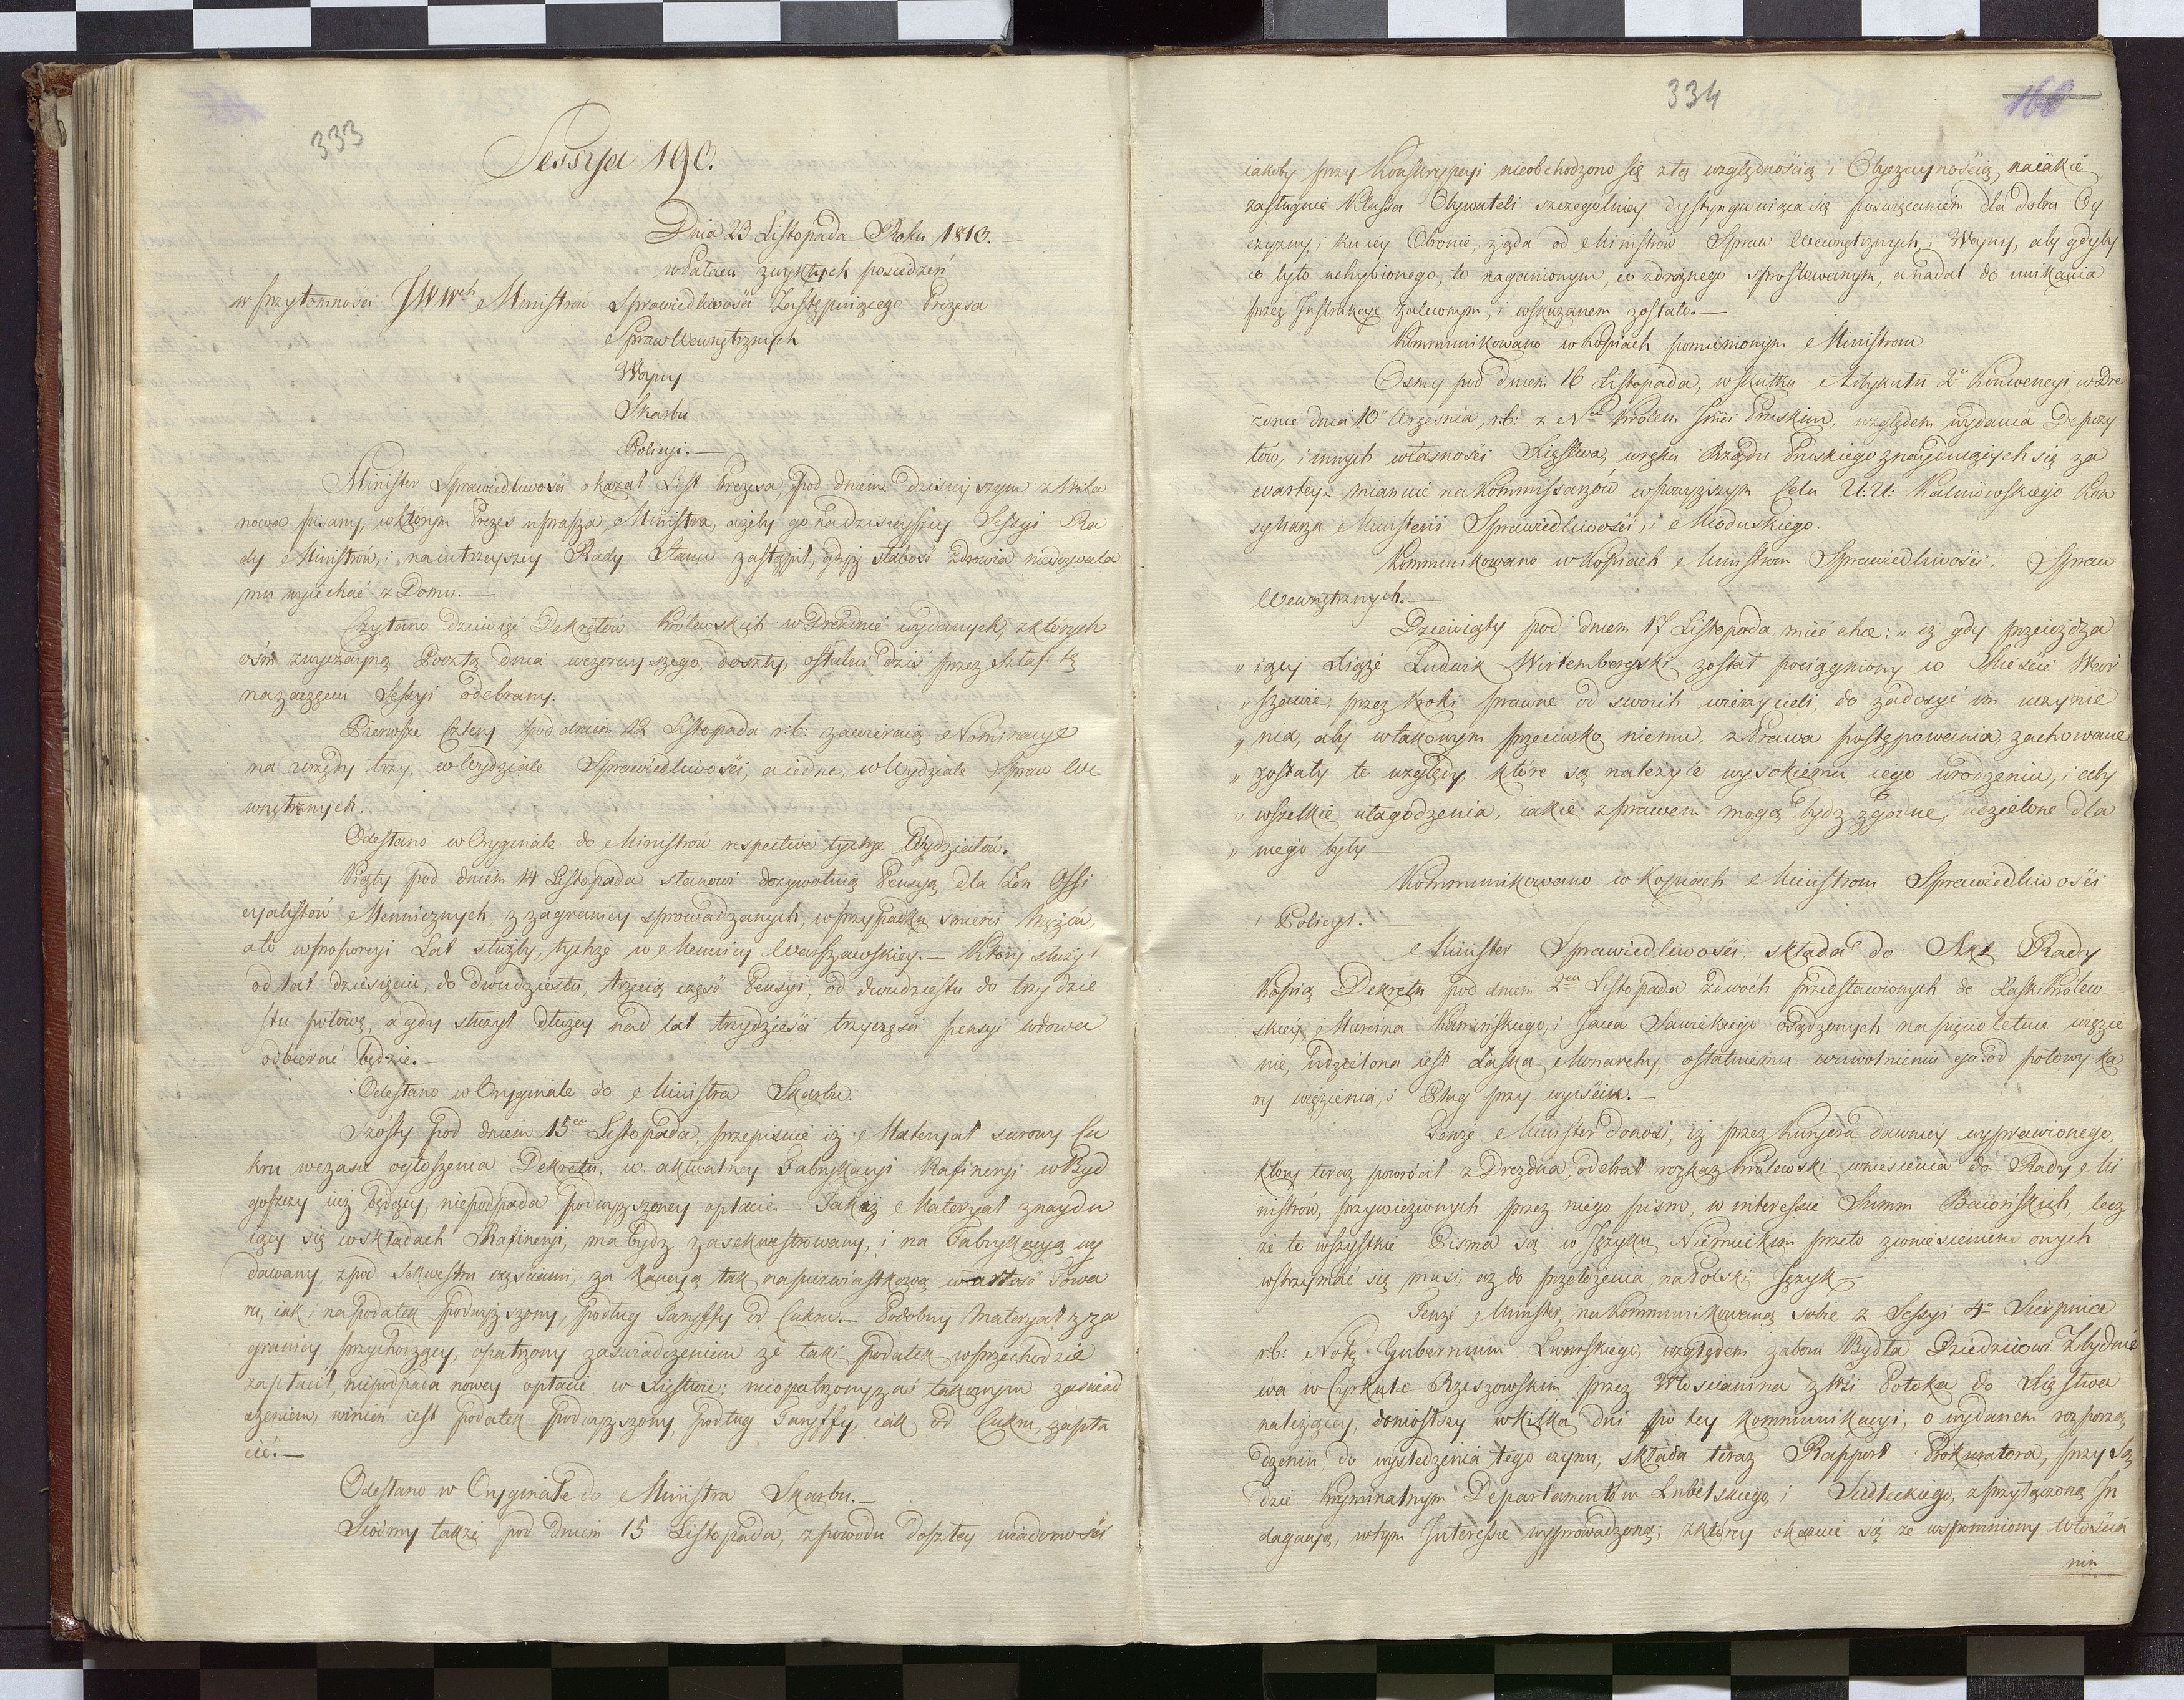 333
Sessya 190.
Dnia 23 Listopada Roku 1810. —
w Pałacu zwykłych posiedzeń
w przytomności JWWch Ministrów Sprawiedliwości Zastępuiącego Prezesa
Spraw Wewnętrznych
Woyny
Skarbu
Policyi. —
Minister Sprawiedliwości okazał List Prezesa, pod dniem dzisieyszym z Wila
nowa pisany, w którym Prezes uprasza Ministra, ażeby go na dzisieyszey Sessyi Ra
dy Ministrów, i na iutrzeyszey Rady Stanu zastąpił, gdyż słabość zdrowia niedozwala
mu wyiechać z Domu. —
Czytano dziewięć Dekretów Królewskich w Dreznie wydanych, z których
ośm zwyczayną Pocztą dnia wczorayszego doszły, ostatni dziś przez Sztafetę
na zaczęciu Sessyi odebrany.
Pierwsze cztery pod dniem 12 Listopada r.b: zawieraią Nominacye
na urzędy trzy, w Wydziale Sprawiedliwości, a iedne, w Wydziale Spraw We
wnętrznych.
Odesłano w Oryginale do Ministrów respective tychże Wydziałów.
Piąty pod dniem 14 Listopada stanowi dożywotnią Pensyą dla Żon Offi
cyalistów Mennicznych z zagranicy sprowadzanych, w przypadku śmierci Mężów,
a to w proporcyi Lat służby, tychże w Mennicy Warszawskiey. — Który służył
od lat dziesięciu, do dwudziestu, trzecią część Pensyi, od dwudziestu do trzydzie
stu połowę, a gdy służył dłużey nad lat trzydzieści trzy części pensyi wdowa
odbierać będzie. —
Odesłano w Oryginale do Ministra Skarbu.
Szósty pod dniem 15 m Listopada, przepisuie iż Materyał surowy Cu
kru w czasie ogłoszenia Dekretu, w aktualney Fabrykacyi Rafineryi w Byd
goszczy iuż będący, niepodpada podwyższoney opłacie. — Takiż Materyał znaydu
iący się w składach Rafineryi, ma bydź zasekwestrowany, i na Fabrykacyą wy
dawany z pod Sekwestru częściami, za kaucyą tak na pierwiastkową wartość Towa
ru, iak i na Podatek podwyższony, podług Taryffy od Cukru. — Podobny Materyał z za
granicy przychodzący, opatrzony zaświadczeniem że taki podatek w przechodzie
zapłacił, niepodpada nowey opłacie w Xięstwie; nieopatrzony zaś takowym zaświad
czeniem, winien iest podatek podwyższony, podług Taryffy, iak od Cukru, zapła
cić. —
Odesłano w Oryginale do Ministra Skarbu. —
Siódmy także pod dniem 15 Listopada, z powodu doszłey wiadomości
334
iakoby przy Konskrypcyi nieobchodzono się z tą względnością i Obyczaynością, na iakie
zasługuie Klassa Obywateli szczególniey dystyngwuiąca się poświęceniem dla dobra Oy
czyzny, i ku iey Obronie, żąda od Ministrów Spraw Wewnętrznych, i Woyny, aby gdyby
co było uchybionego, to naganionym, co zdrożnego sprostowanym, a nadal do unikania
przez Instrukcye zaleconym, i wskazanem zostało. —
Kommunikowano w Kopiach pomienionym Ministrom
Osmy pod dniem 16 Listopada, w skutku Artykułu 2o Konwencyi w Dre
znie dnia 10o Września, r.b: z Królem Jmci Pruskim, względem wydania Depozy
tów, i innych własności Xięstwa, w ręku Rządu Pruskiego znayduiących się za
wartey — mianuie na Kommissarzów w powyższym Celu U:U: Kalinowskiego Kon
syliarza Ministerii Sprawiedliwości, i Mioduskiego.
Kommunikowano w Kopiach Ministrom Sprawiedliwości; Spraw
Wewnętrznych. —
Dziewiąty pod dniem 17 Listopada mieć chce: „ iż gdy przeieżdża
„ iący Xiąże Ludwik Wirtembergski został pociągniony w Mieście War
„ szawie, przez kroki prawne od swoich wierzycieli, do zadosyć im uczynie
„ nia, aby w takowym przeciwko niemu, z Prawa postępowania, zachowane
„ zostały te względy które są należyte wysokiemu iego urodzeniu, i aby
„ wszelkie ułagodzenia, iakie z prawem mogą bydz zgodne, udzielone dla
„ niego były —
Kommunikowano w kopiach Ministrom Sprawiedliwości
i Policyi.
Minister Sprawiedliwości, składa do Akt Rady
Kopią Dekretu pod dniem 2go Listopada z dwóch przedstawionych do Łaski Królew
skiey Marcina Kamińskiego, i Jana Sawickiego osądzonych na pięcioletnie więzie
nie, udzielona iest Łaska Monarchy, ostatniemu w uwolnieniu go od połowy ka
ry więzienia, i Plag przy wyiściu. —
Tenże Minister donosi, iż przez kuryera dawniey wyprawionego,
który teraz powrócił z Drezdna, odebrał rozkaz Królewski wniesienia do Rady Mi
nistrów, przywiezionych przez niego pism, w interessie Summ Baiońskich, lecz
że te wszystkie Pisma są w Języku Niemieckim przeto z wniesieniem onych
wstrzymać się musi, aż do przełożenia na Polski Język —
Tenże Minister, na Kommunikowaną sobie z Sessyi 4o Sierpnia
rb: Notę Gubernium Lwowskiego, względem zaboru Bydła Dziedzicowi Zbydnio
wa w Cyrkule Rzeszowskim przez Włościanina z Wsi Potoka do Xięstwa
należącey, doniosłszy w kilka dni po tey kommunikacyi, o wydanem rozporzą
dzeniu, do wyśledzenia tego czynu, składa teraz Rapport Prokuratora, przy Są
dzie kryminalnym Departamentów Lubelskiego, i Siedleckiego, z przyłączoną In
dagacyą, w tym Interessie wyprowadzoną; z którey okazuie się że wspomniony Włościa
nin